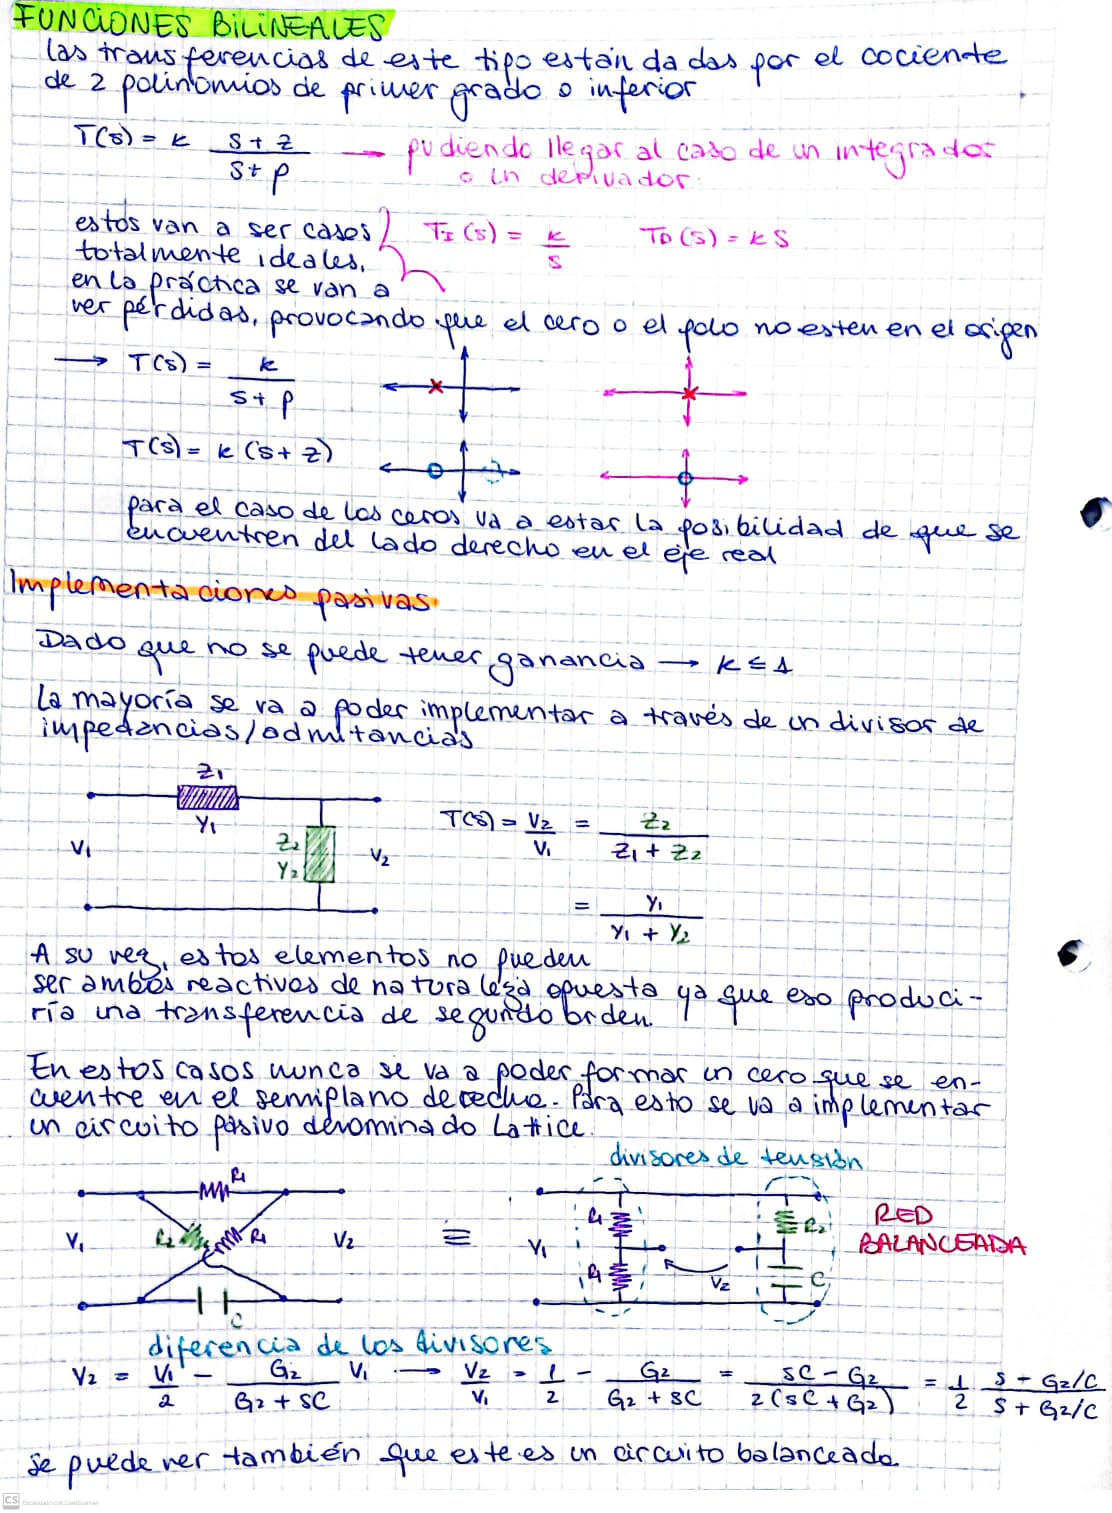 FUNCIONES BILINEALES
las transferencias de este tipo están dadas por el cociente
de 2 polinomios de primer grado o inferior
T(s) = k (s + z)/(s + p) → pudiendo llegar al caso de un integrador
o un derivador.
estos van a ser casos
totalmente ideales,
en la práctica se van a
ver pérdidas, provocando que el cero o el polo no esten en el origen
TI(s) = k/s TD(s) = kS
→ T(s) = k/(s + p)
T(s) = k (s + z)
para el caso de los ceros va a estar la posibilidad de que se
encuentren del lado derecho en el eje real
Implementaciones pasivas.
Dado que no se puede tener ganancia → k ≤ 1
La mayoría se va a poder implementar a través de un divisor de
impedancias/admitancias
Z1
Y1
Z2
Y2
V1
V2
T(s) = V2/V1 = Z2/(Z1 + Z2)
= Y1/(Y1 + Y2)
A su vez, estos elementos no pueden
ser ambos reactivos de naturaleza opuesta ya que eso produci-
ría una transferencia de segundo orden.
En estos casos nunca se va a poder formar un cero que se en-
cuentre en el semiplano derecho. Para esto se va a implementar
un circuito pasivo denominado Lattice.
divisores de tensión
R1
V1 R2 R1 V2
C
≡
V1 R1 R1 V2 R2 C
RED
BALANCEADA
diferencia de los divisores
V2 = V1/2 - G2/(G2 + SC) V1 → V2/V1 = 1/2 - G2/(G2 + SC) = (SC - G2)/(2(SC + G2)) = 1/2 (S - G2/C)/(S + G2/C)
se puede ver también que este es un circuito balanceado.
CS Escaneado con CamScanner